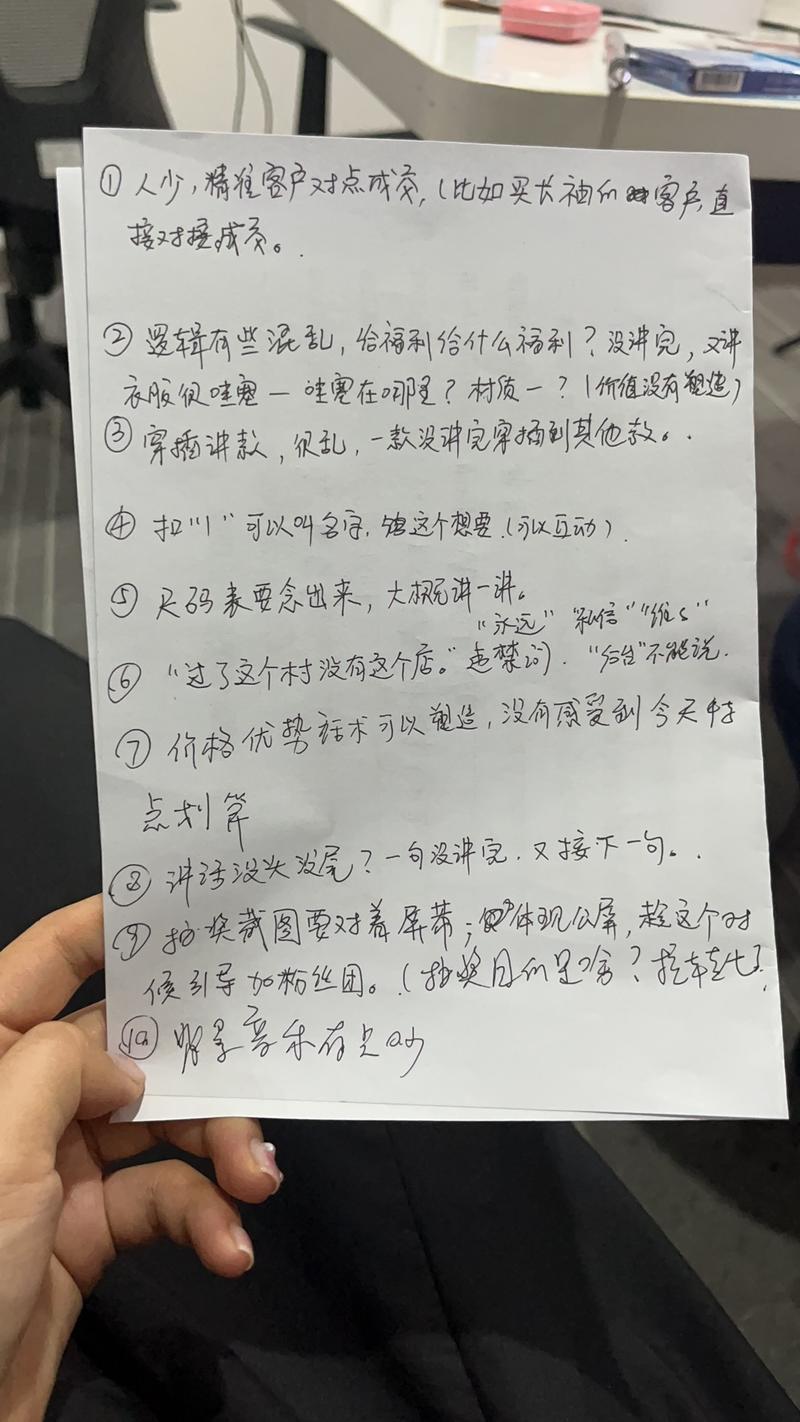 ① 人少，精准客户对点成交，（比如买长袖的客户，直
接对接成交。
② 逻辑有些混乱，给福利给什么福利？没讲完，又讲
衣服很哇塞一哇塞在哪里？材质一？（价值没有塑造）
③ 穿插讲款，很乱，一款没讲完穿插到其他款。
④ 扣“1”可以叫名字，这个想要（可以互动）.
⑤ 尺码表要念出来，大概讲一讲。
“永远” “私信”
⑥ “过了这个村没有这个店。”违禁词. “后台”不能说.
⑦ 价格优势话术可以塑造，没有感受到今天特
点划算
⑧ 讲话没头没尾？一句没讲完.又接下一句。
⑨ 抽奖截图要对着屏幕；体现公屏，趁这个时
候引导加粉丝团。（抽奖目的是啥？
⑩ 背景音乐有点吵